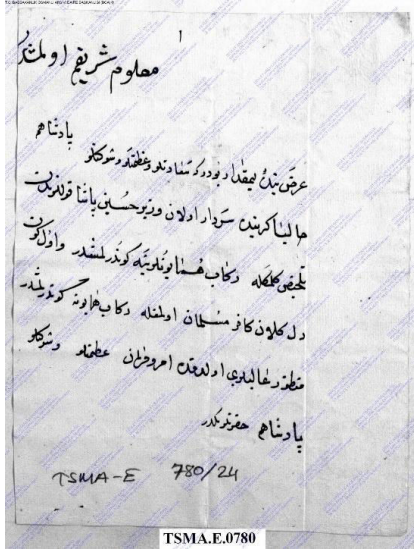 معلوم شريفم اولمشدر
پادشاهم
عرض بندهٔ بيمقدار بودركه سعادتلو و عظمتلو و شوكتلو
حاليا كريده سردار اولان وزير حسين پاشا قوللرندن
تلخيص كلمكله ركاب همايونلرينه كوندرلمشدر و اول كون
دل كلان كافر مسلمان اولمغله ركاب همايونه كوندرلمشدر
منظور عاليلرى اولدقده امر و فرمان عظمتلو و شوكتلو
پادشاهم حضرتلرينكدر
TSMA-E 780/24
TSMA.E.0780